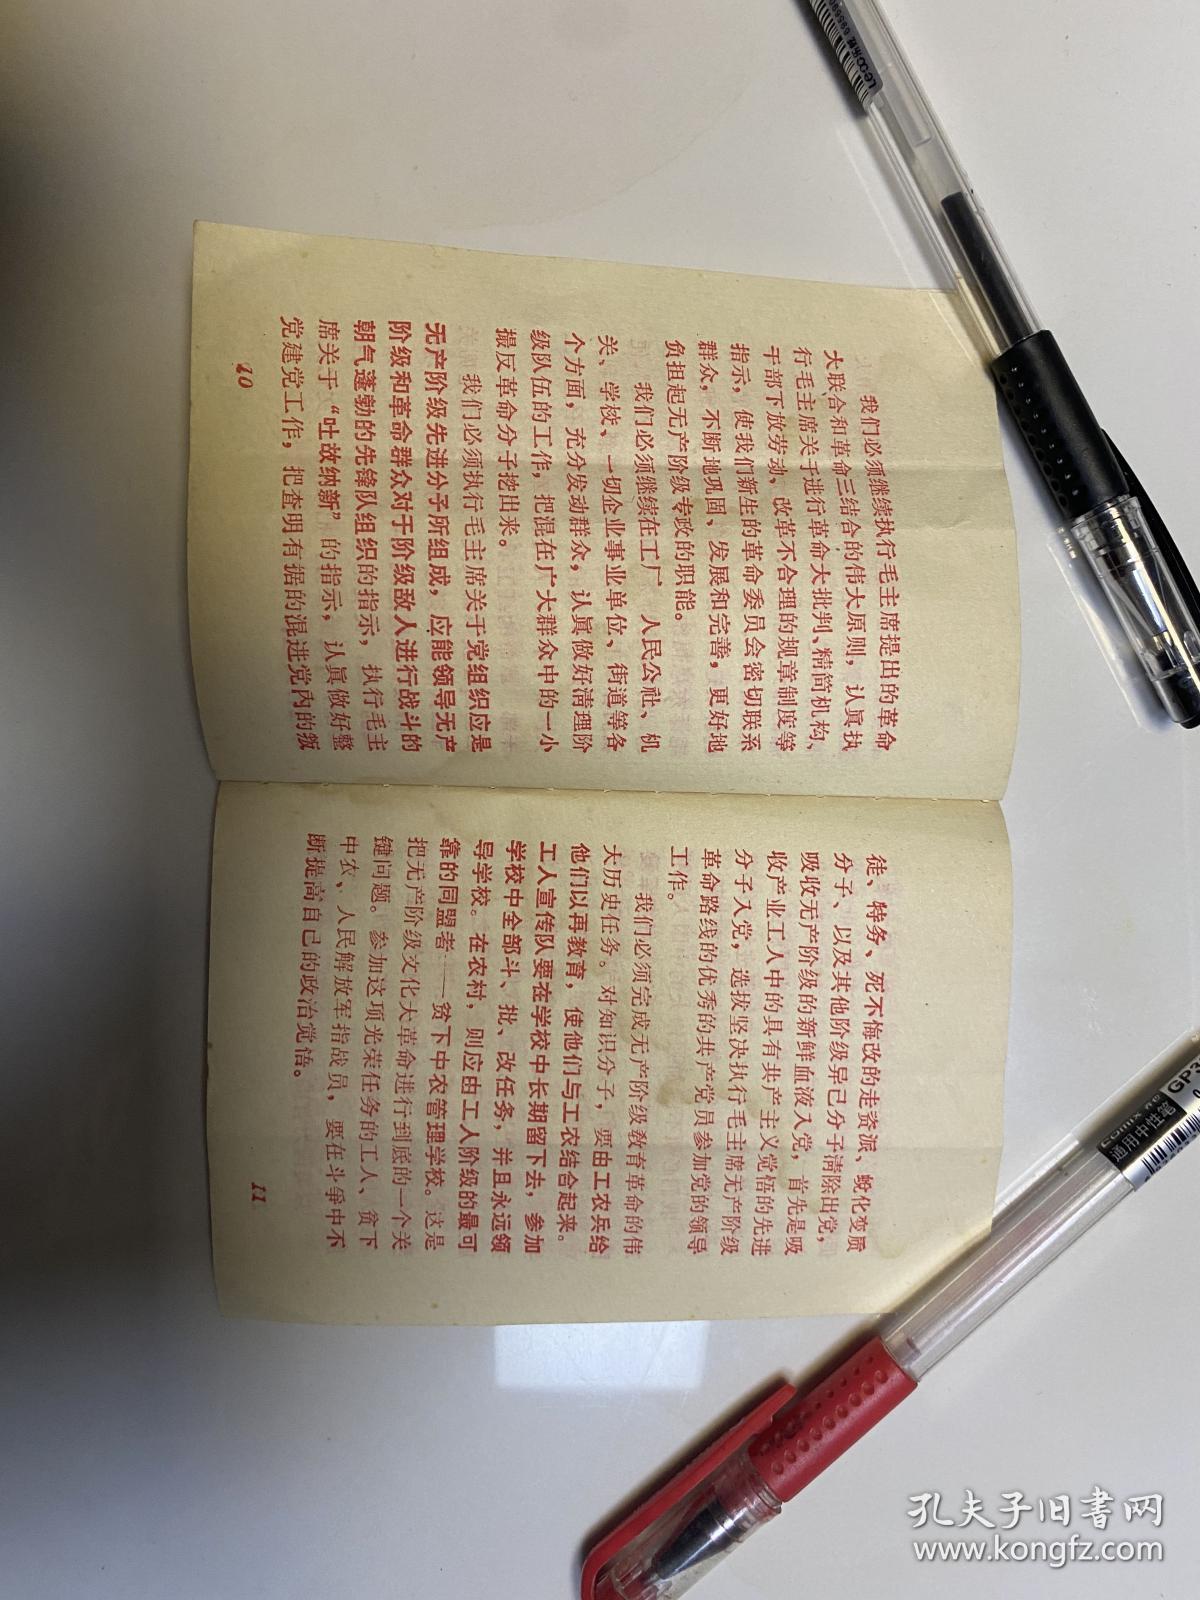 我们必须继续执行毛主席提出的革命
大联合和革命三结合的伟大原则，认真执
行毛主席关于进行革命大批判、精简机构、
干部下放劳动，改革不合理的规章制度等
指示，使我们新生的革命委员会密切联系
群众，不断地巩固、发展和完善，更好地
负担起无产阶级专政的职能。
我们必须继续在工厂、人民公社、机
关、学校、一切企业事业单位、街道等各
个方面，充分发动群众，认真做好清理阶
级队伍的工作，把混在广大群众中的一小
撮反革命分子挖出来。
我们必须执行毛主席关于党组织应是
无产阶级先进分子所组成，应能领导无产
阶级和革命群众对于阶级敌人进行战斗的
朝气蓬勃的先锋队组织的指示，执行毛主
席关于“吐故纳新”的指示，认真做好整
党建党工作，把查明有据的混进党内的叛
10
徒、特务、死不悔改的走资派、蜕化变质
分子、以及其他阶级异己分子清除出党，
吸收无产阶级的新鲜血液入党，首先是吸
收产业工人中的具有共产主义觉悟的先进
分子入党，选拔坚决执行毛主席无产阶级
革命路线的优秀的共产党员参加党的领导
工作。
我们必须完成无产阶级教育革命的伟
大历史任务。对知识分子，要由工农兵给
他们以再教育，使他们与工农结合起来。
工人宣传队要在学校中长期留下去，参加
学校中全部斗、批、改任务，并且永远领
导学校。在农村，则应由工人阶级的最可
靠的同盟者——贫下中农管理学校。这是
把无产阶级文化大革命进行到底的一个关
键问题。参加这项光荣任务的工人、贫下
中农、人民解放军指战员，要在斗争中不
断提高自己的政治觉悟。
11
通用中性笔
孔夫子旧书网
www.kongfz.com